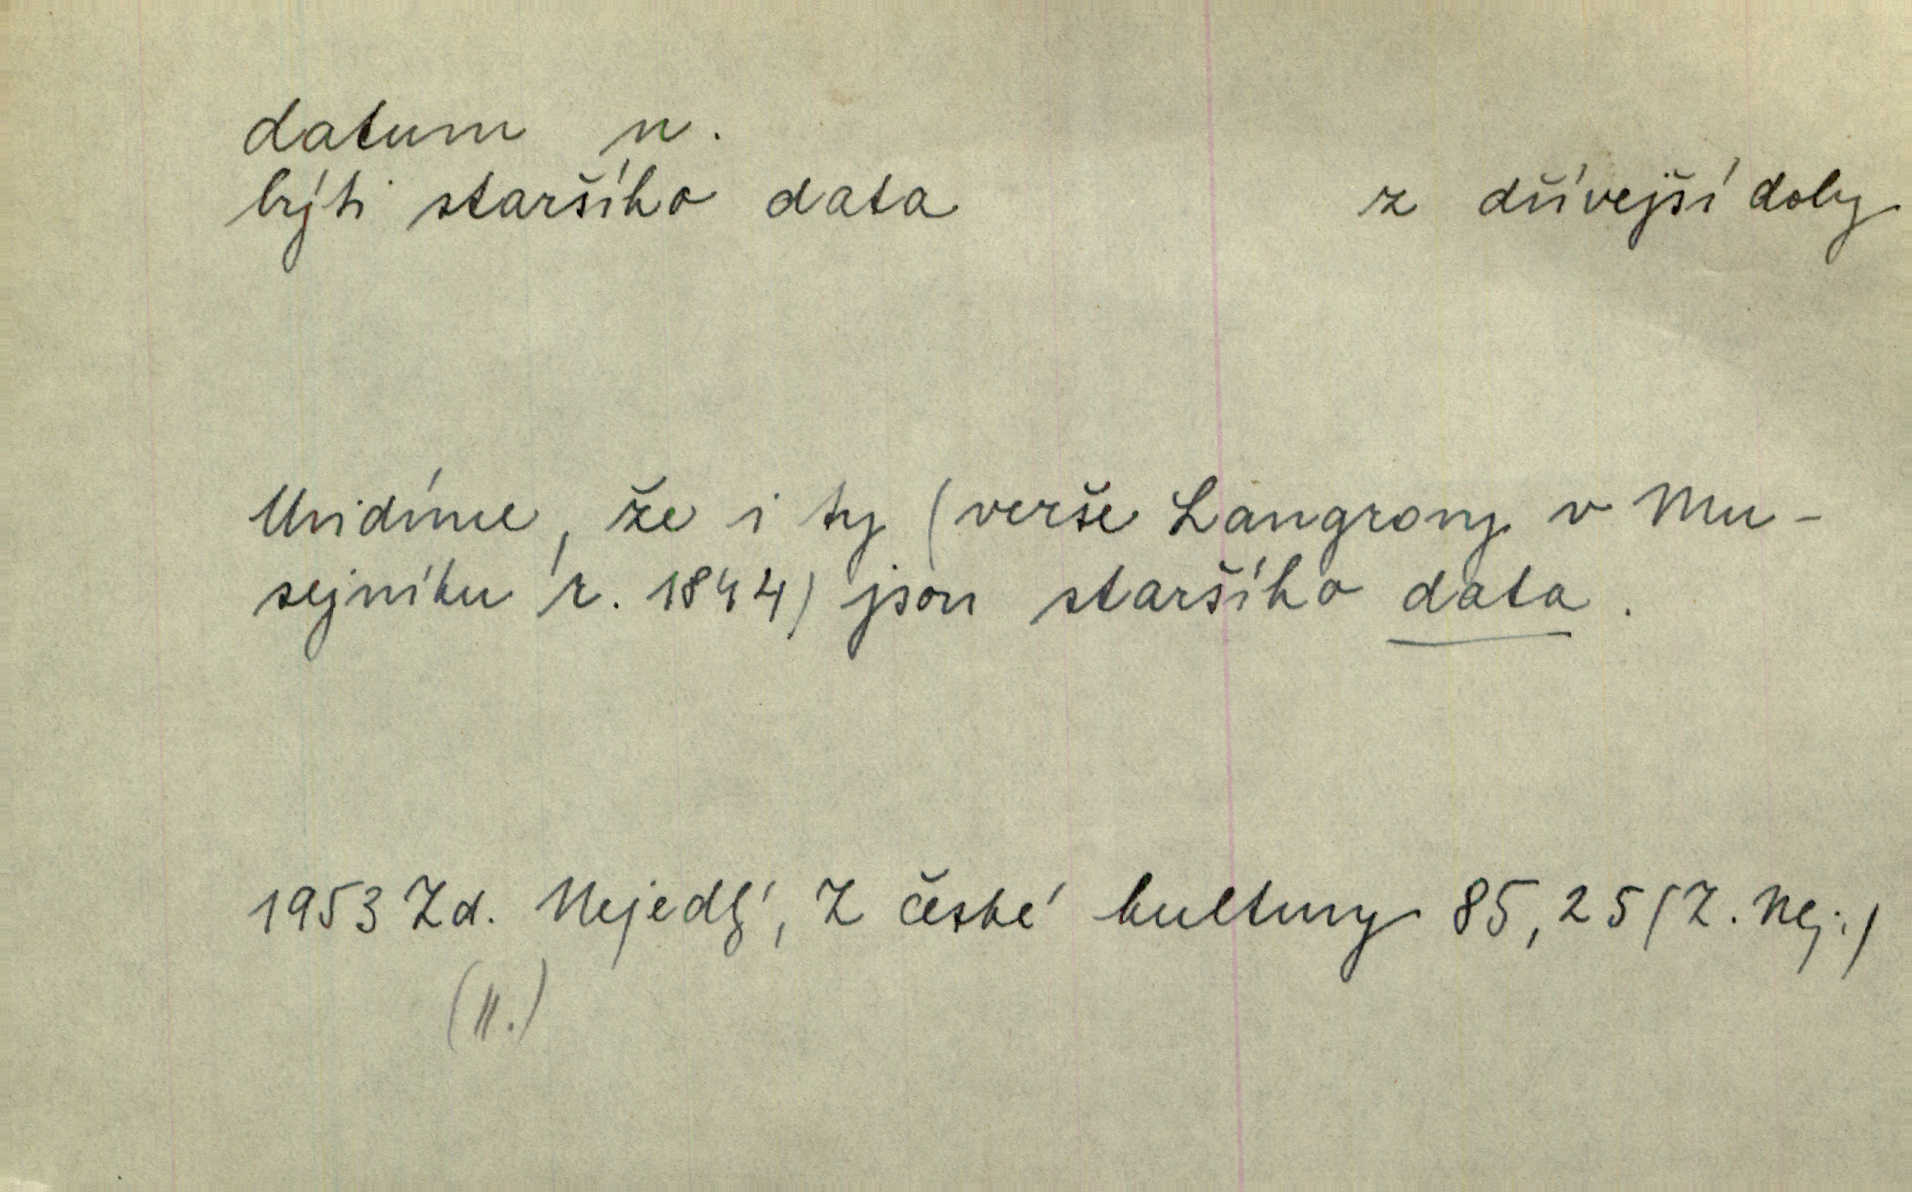 datum n.
býti staršího data z dřívější doby
Uvidíme, že i ty (verše Langrovy v Mu-
sejníku r. 1844) jsou staršího data.
1953 Zd. Nejedlý, Z české kultury 85, 25 (Z. Nej.)
(II.)